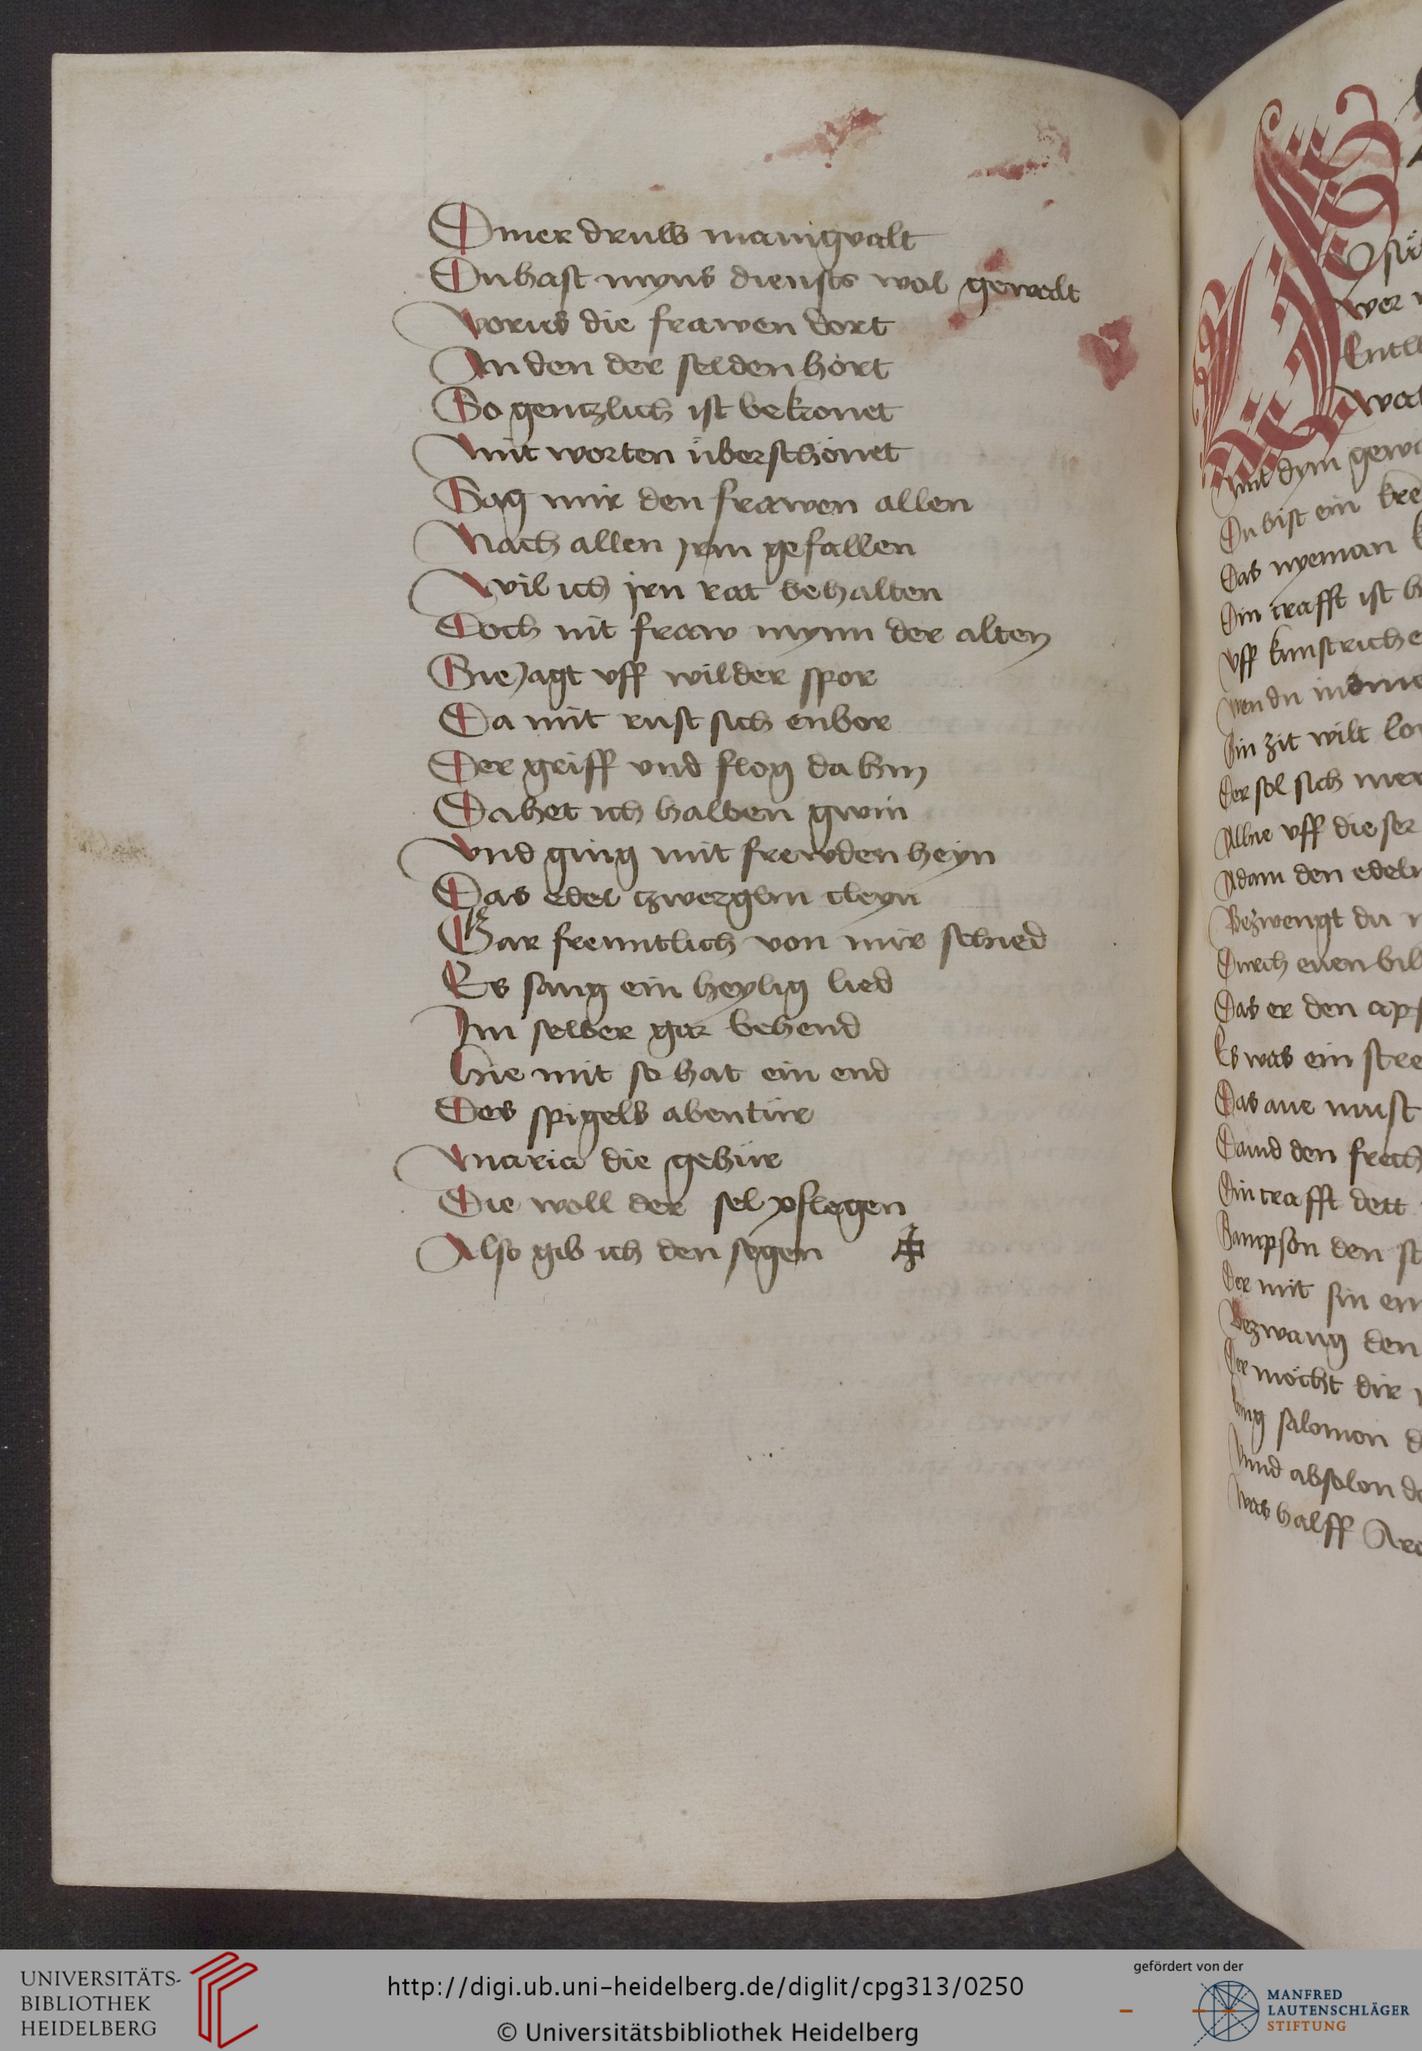 Diner druw manigvalt
Du hast myns diensts wol gewalt
Vorus die frawen dort
An den der selden hort
So gentzlich ist bekronet
Mit worten überschönet
Sag mir den frawen allen
Nach allen jrm gefallen
Wil ich jrn rat behalten
Doch nit fraw mynn der alten
Sie jagt vff wilder spor
Da mit rust sich enbor
Der griff vnd flog da hin
Da het ich halben gwin
Vnd ging mit frewden heyn
Das edel zwerglin cleyn
Gar freuntlich von mir schied
Es sang ein heylig lied
Im selber gar behend
Hie mit so hat ein end
Des spigels abentür
Maria die gehür
Die woll der sel pflegen
Also gib ich den segen
Wer
Mit dym
Du bist ein
Das nyeman
Din crafft ist
Vff kunstriche
Wen du
Ein zit wilt
Der sol sich
Alhie vff dieser
Adam den edeln
Bezwengt du
Durch euen
Das er den
Es was ein
Das aue must
Dauid den frech
Din crafft dett
Sampson den
Der mit sin
Bezwang den
Der möcht dir
kung salomon
Vnd absolon
Was halff
UNIVERSITÄTS-
BIBLIOTHEK
HEIDELBERG
http://digi.ub.uni-heidelberg.de/diglit/cpg313/0250
© Universitätsbibliothek Heidelberg
gefördert von der
MANFRED
LAUTENSCHLÄGER
STIFTUNG